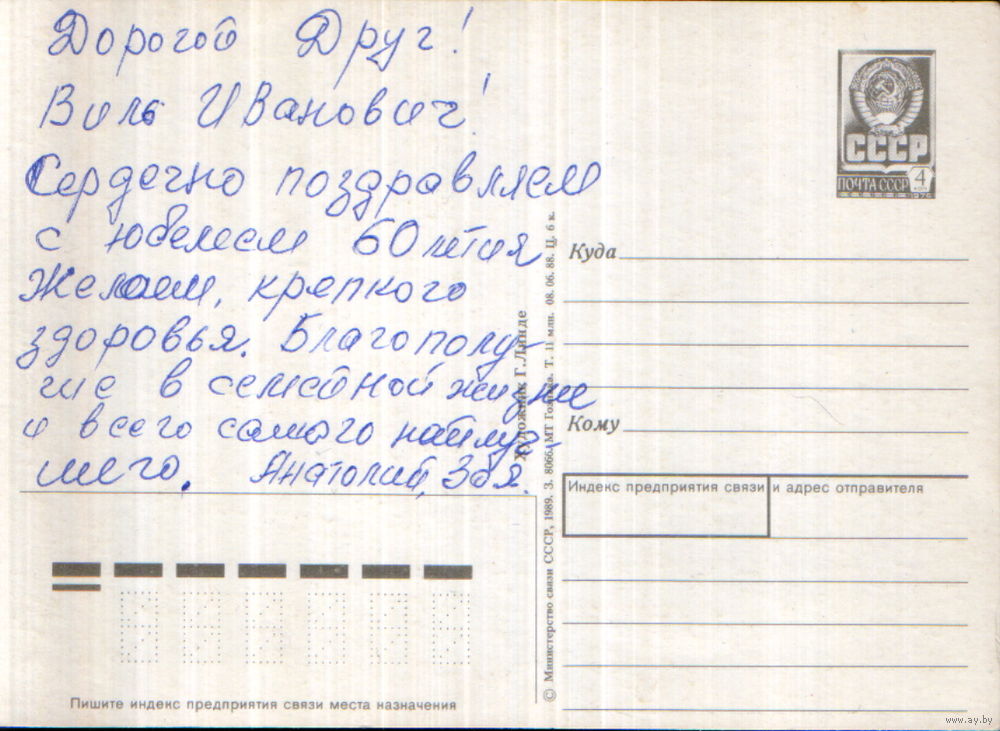 Дорогой Друг!
Виль Иванович!
Сердечно поздравляем
с юбилеем 60 летия
Желаем, крепкого
здоровья. Благополу-
чие в семейной жизне
и всего самого найлуч-
шего. Анатолий, Зоя.
СССР
ПОЧТА СССР 4
1976
Куда
Кому
Индекс предприятия связи и адрес отправителя
© Министерство связи СССР, 1989. З. 8066. МТ Гознака. Т. 11 млн. 08. 06. 88. Ц. 6 к.
Художник Г. Линде
Пишите индекс предприятия связи места назначения
www.ay.by